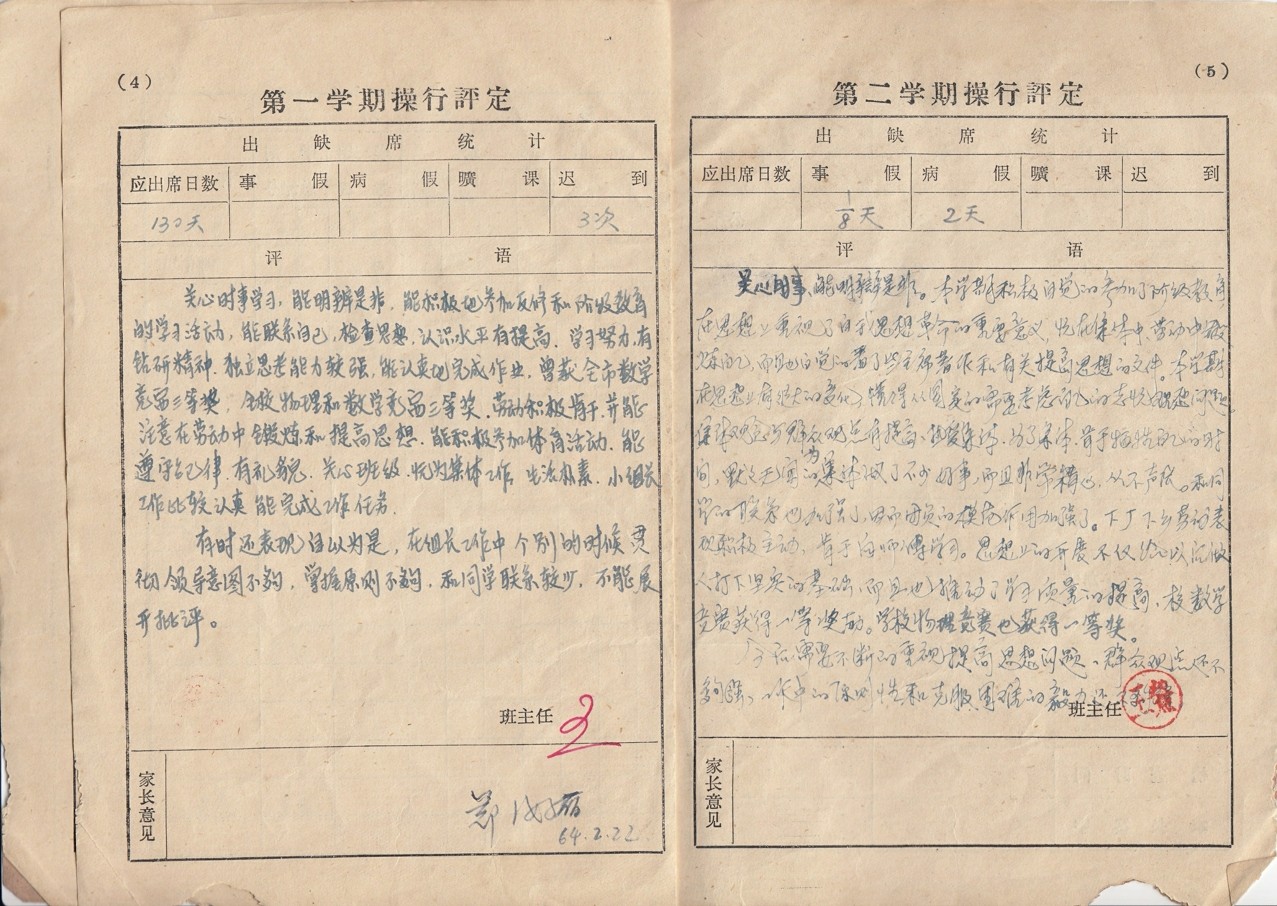 (4)
第一学期操行評定
出缺席统计
应出席日数 事假 病假 曠课 迟到
130天 3次
评语
关心时事学习，能明辨是非，能积极地参加反修和阶级教育
的学习活动，能联系自己，检查思想，认识水平有提高．学习努力，有
钻研精神．独立思考能力较强，能认真地完成作业，曾获全市数学
竞赛三等奖，全校物理和数学竞赛三等奖．劳动积极肯干，并能
注意在劳动中锻炼和提高思想．能积极参加体育活动．能
遵守纪律，有礼貌．关心班级．忱为集体工作，生活朴素．小组长
工作比较认真能完成工作任务．
有时还表现自以为是，在组长工作中个别的时候贯
彻领导意图不夠，掌握原则不夠，和同学联系较少，不能展
开批评。
班主任
家长意见
64.2.22
(5)
第二学期操行評定
出缺席统计
应出席日数 事假 病假 曠课 迟到
1/8天 2天
评语
关心时事，能明辨是非。本学期积极自觉的参加了阶级教育
在思想上重视了自我思想革命的重要意义，忱在集体中劳动中锻
炼自己，而且自觉的看了些主席著作和有关提高思想的文件。本学期
在思想上有很大的变化，懂得从国家的需要考虑自己的志忱理想问题
集体观念群众观点有提高，热爱集体，为了集体，肯于牺牲自己的时
间，默默无闻的为集体做了不少好事，而且非常，从不声张。和同
学的联系也加强了，因而团员的模范作用加强了。下厂下乡劳动表
现积极主动，肯于向师傅学习。思想上的开展不仅以后做
人打下坚实的基础，而且也推动了学习质量的提高，校数学
竞赛获得一等奖励。学校物理竞赛也获得一等奖。
今后需要不断的重视提高思想问题，群众观点还不
夠强，工作中的原则性和克服困难的毅力还
班主任
家长意见